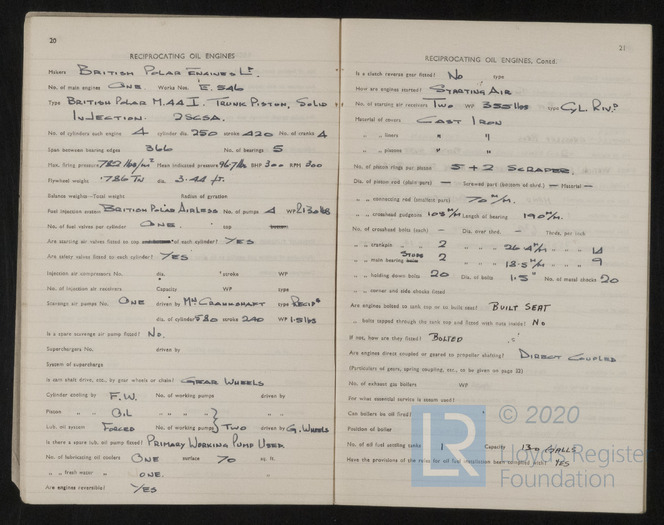 20
RECIPROCATING OIL ENGINES
Makers BRITISH POLAR ENGINES LD.
No. of main engines ONE Works Nos. E.546
Type BRITISH POLAR M.44 I. TRUNK PISTON, SOLID
INJECTION. 2SCSA.
No. of cylinders each engine 4 cylinder dia. 250 stroke 420 No. of cranks 4
Span between bearing edges 366 No. of bearings 5
Max. firing pressure 782 lbs/in² Mean indicated pressure 96.7 lbs BHP 300 RPM 300
Flywheel weight .786 TN dia. 3.44 ft.
Balance weights—Total weight Radius of gyration
Fuel injection system BRITISH POLAR AIRLESS No. of pumps 4 WP
No. of fuel valves per cylinder ONE. top
Are starting air valves fitted to top of each cylinder? YES
Are safety valves fitted to each cylinder? YES
Injection air compressors No. dia. stroke WP
No. of injection air receivers Capacity WP type
Scavenge air pumps No. ONE driven by MN CRANKSHAFT type RECIP
dia. of cylinder 580 stroke 240 WP 1.5 lbs
Is a spare scavenge air pump fitted? No.
Superchargers No. driven by
System of supercharge
Is cam shaft drive, etc., by gear wheels or chain? GEAR WHEELS
Cylinder cooling by F.W. No. of working pumps driven by
Piston " OIL " " " "
Lub. oil system FORCED No. of working pumps TWO driven by G. WHEELS
Is there a spare lub. oil pump fitted? PRIMARY WORKING PUMP USED
No. of lubricating oil coolers ONE surface 70 sq. ft.
" " fresh water " ONE. "
Are engines reversible? YES
21
RECIPROCATING OIL ENGINES, Contd.
Is a clutch reverse gear fitted? No type
How are engines started? STARTING AIR
No. of starting air receivers TWO WP 355 lbs type CYL. RIVD
Material of covers CAST IRON
" " liners " "
" " pistons " "
No. of piston rings per piston 5 + 2 SCRAPER.
Dia. of piston rod (plain part) — Screwed part (bottom of thrd.) — Material —
" " connecting rod (smallest part) 70 M/M.
" " crosshead gudgeons 105 M/M Length of bearing 190 M/M.
No. of crosshead bolts (each) — Dia. over thrd. — Thrds. per inch
" " crankpin " " 2 " " 26.4 M/M " " " 14
" " main bearing STUDS 2 " " 18.5 M/M " " " 9
" " holding down bolts 20 Dia. of bolts 1.5" No. of metal chocks 20
" " corner and side chocks fitted
Are engines bolted to tank top or to built seat? BUILT SEAT
" bolts tapped through the tank top and fitted with nuts inside? No
If not, how are they fitted? BOLTED
Are engines direct coupled or geared to propeller shafting? DIRECT COUPLED
(Particulars of gears, spring coupling, etc., to be given on page 22)
No. of exhaust gas boilers WP
For what essential service is steam used?
Can boilers be oil fired?
Position of boiler
No. of oil fuel settling tanks 1 Capacity 130 GALLS
Have the provisions of the rules for oil fuel installation been complied with? YES
LR
© 2020
Lloyd's Register
Foundation